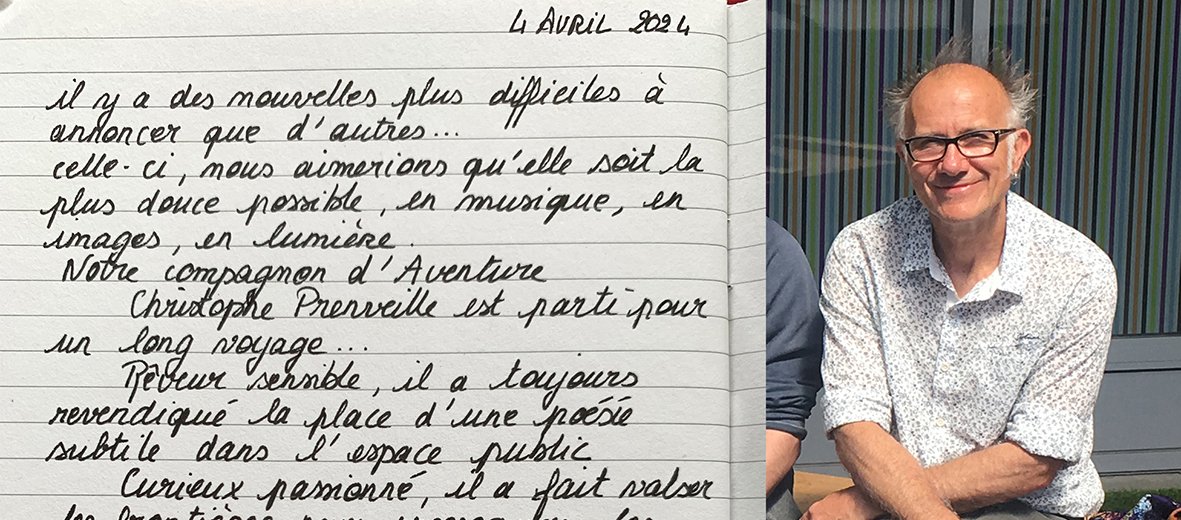 4 AVRIL 2024
il y a des nouvelles plus difficiles à
annoncer que d'autres...
celle-ci, nous aimerions qu'elle soit la
plus douce possible, en musique, en
images, en lumière.
Notre compagnon d'Aventure
Christophe Prenveille est parti pour
un long voyage...
Rêveur sensible, il a toujours
revendiqué la place d'une poésie
subtile dans l'espace public
Curieux passionné, il a fait valser
les frontières pour